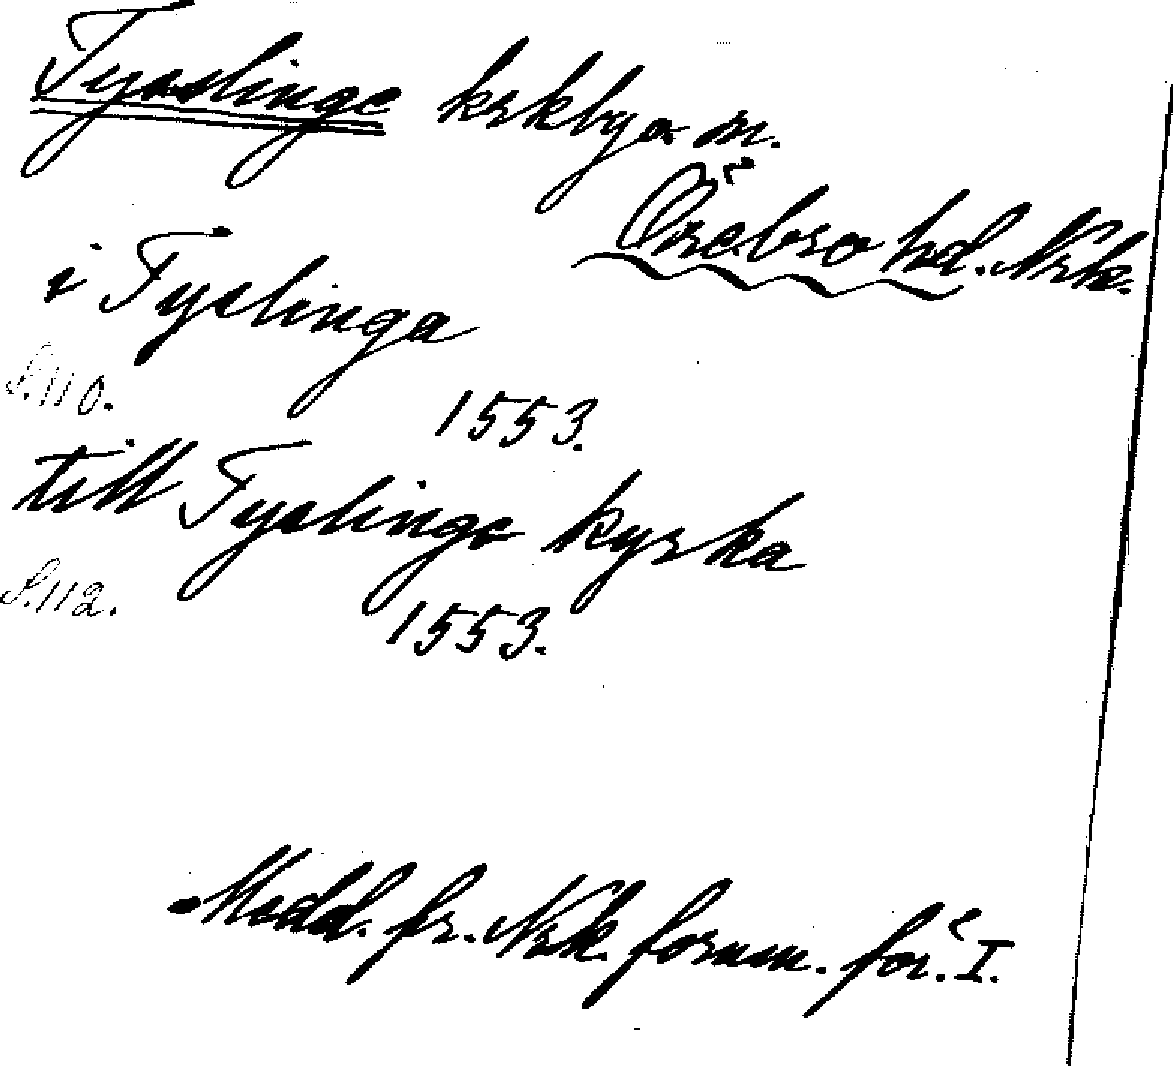 Tysslinge krkby o. sn.
Örebro hd. Nrk.
i Tyslinga
S. 110.
1553.
till Tyslinge kyrka
S. 112.
1553.
Medd. fr. Nrk. fornm. för. I.